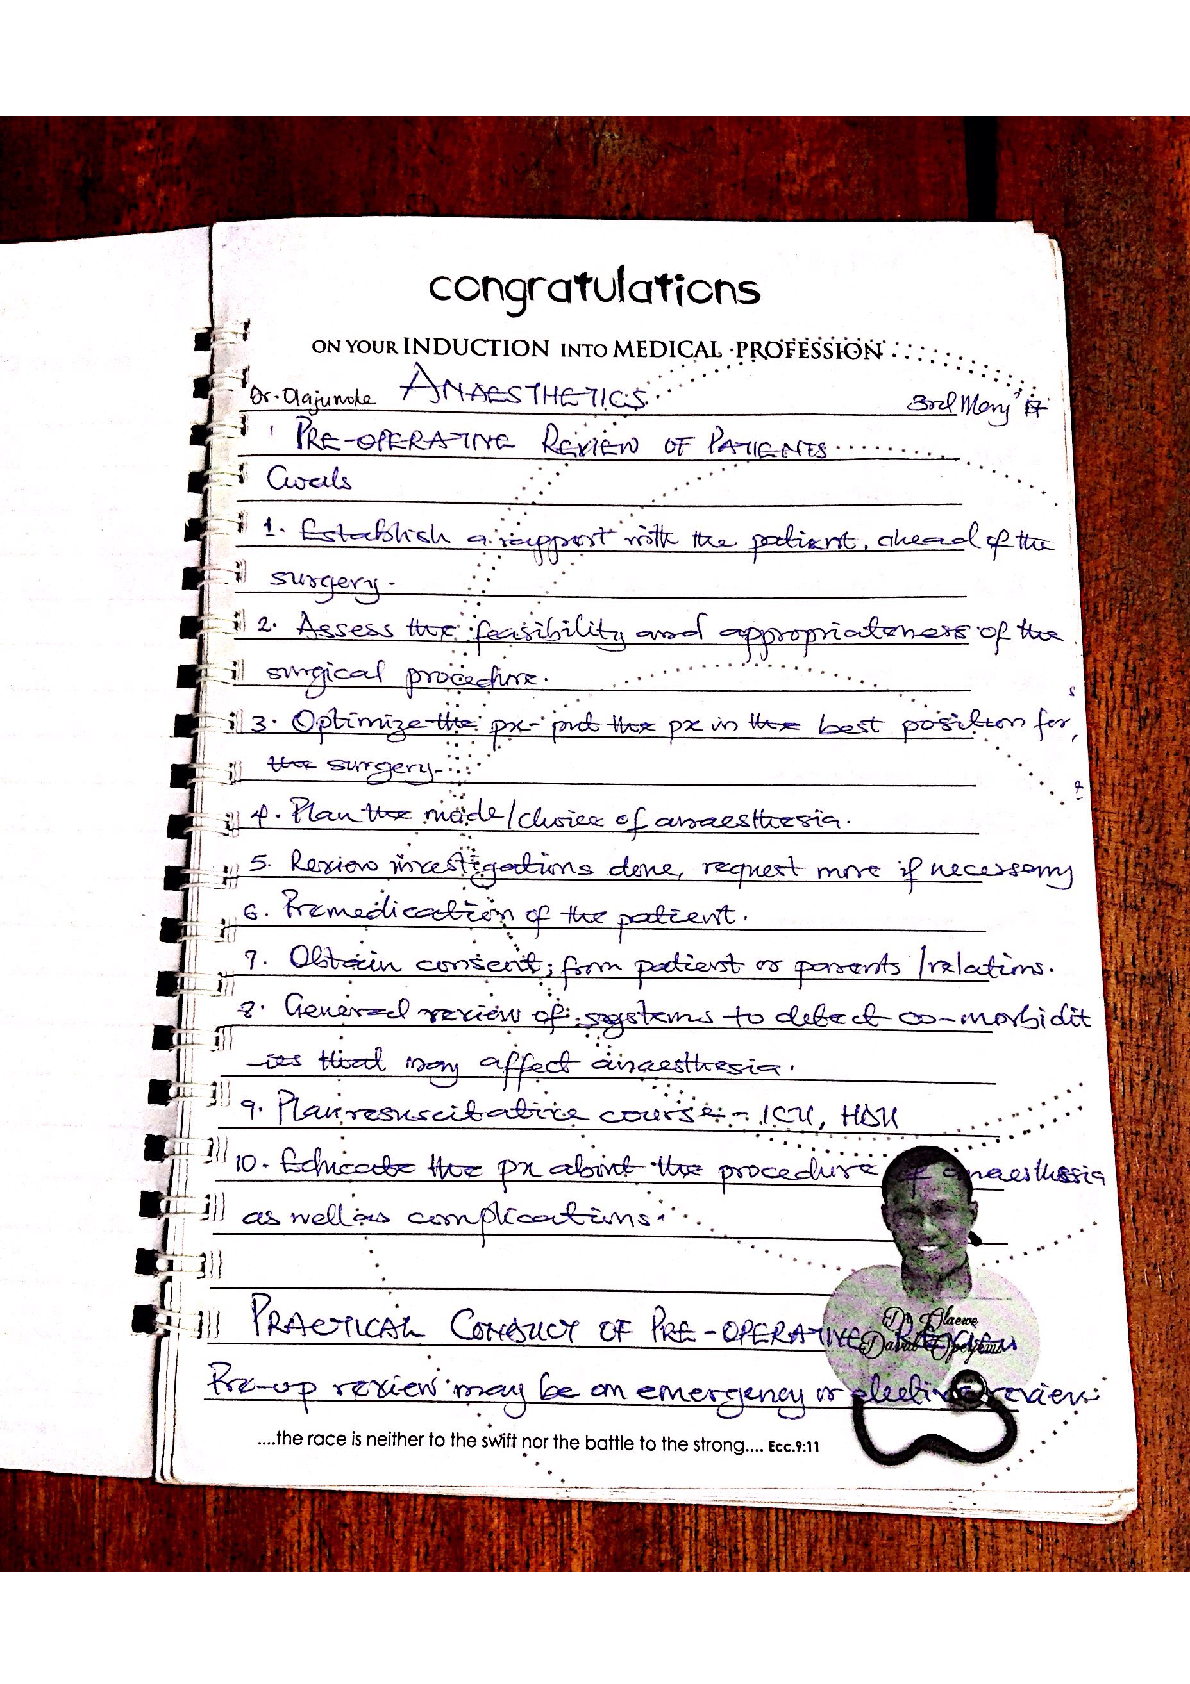 congratulations
ON YOUR INDUCTION INTO MEDICAL PROFESSION
Dr. Olajumoke ANAESTHETICS 3rd May '17
PRE-OPERATIVE REVIEW OF PATIENTS
Goals
1. Establish a rapport with the patient, ahead of the
surgery.
2. Assess the feasibility and appropriateness of the
surgical procedure.
3. Optimize the px - put the px in the best position for
the surgery.
4. Plan the mode/choice of anaesthesia.
5. Review investigations done, request more if necessary
6. Premedication of the patient.
7. Obtain consent; from patient or parents/relations.
8. General review of systems to detect co-morbidit
-ies that may affect anaesthesia.
9. Plan resuscitative course - ICU, HDU
10. Educate the px about the procedure of anaesthesia
as well as complications.
PRACTICAL CONDUCT OF PRE-OPERATIVE REVIEW
Dr Olaewe
David Opeyemi
Pre-op review may be an emergency or elective review.
....the race is neither to the swift nor the battle to the strong.... Ecc.9:11